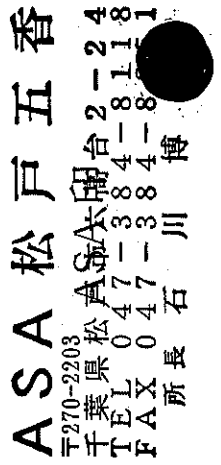 ASA 松戸五香
〒270-2203
千葉県松戸市六高台2-24
TEL 047-384-8118
FAX 047-384-
所長 石川 博